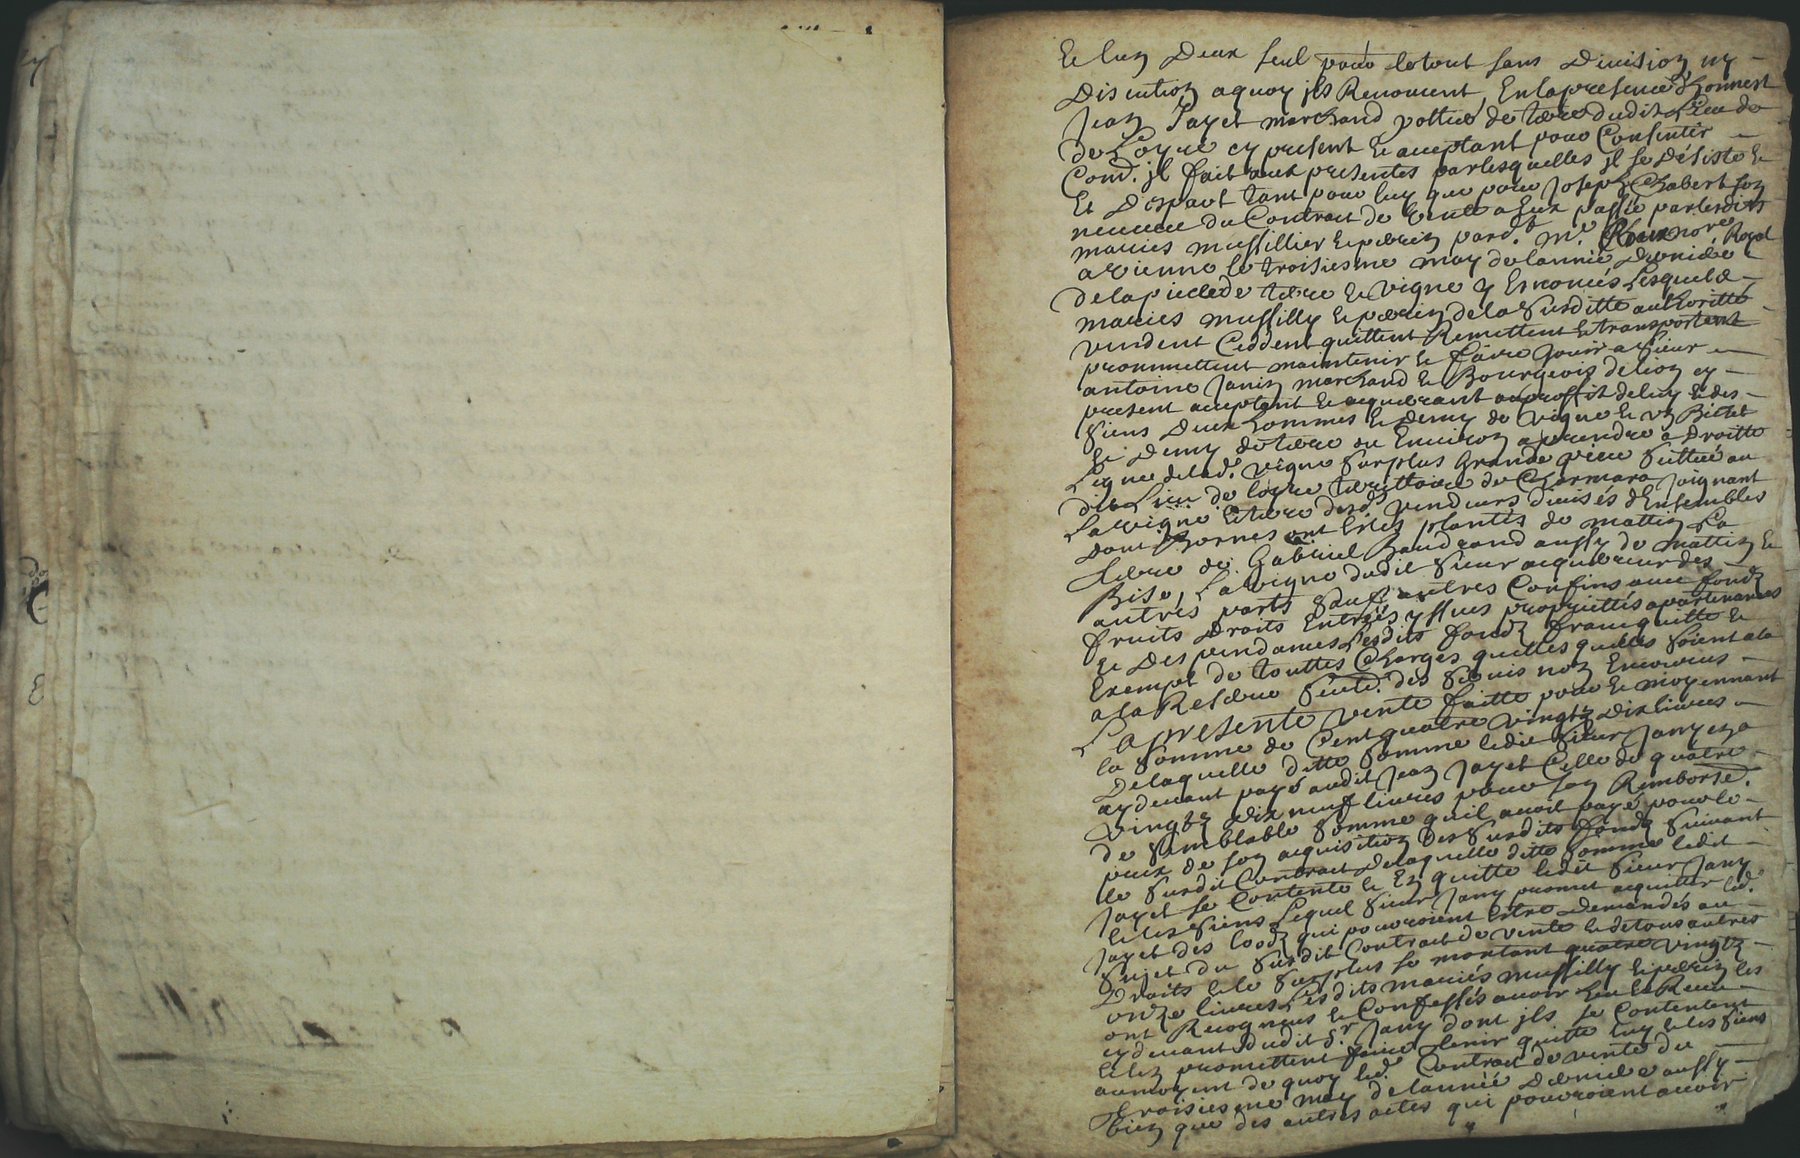 Et lun Deux seul pour le tout sans Division ny
Discution a quoy jls Renoncent, En la presence d'honnest
Jean Jayet marchand pottier de terre dudit Lieu de
de Loyre cy present & acceptant pour Consentir
Comd. jl fait aux presentes par lesquelles jl se Désiste &
Et Despart tant pour luy que pour Joseph Chabert son
neveu du Contrat de Vente a Eux passé par lesdits
maries mussillier & perrin pard.t m.e Roux no.re Royal
a Vienne le troisiesme may de lannée derniere
de la piece de terre & vigne y Enoncés Lesquels
maries mussilly & perrin de la susditte authoritté
vendent Ceddent quittent Remettent & transportent
promettent maintenir & faire Jouir a sieur
antoine Janin marchand & Bourgeois de lion cy
present acceptant & acquerant au proffit de luy & des
siens Deux hommes & Demy de vigne & un Bichet
& Demy de terre ou Environ a prendre a Droitte
Ligne de lad. vigne sur plus Grande piece scittué au
dit Lieu de loyre territtoire de Charmara joignant
La vigne & terre desd. vendeurs divisés d'Ensembles
dont Bornes ont Estés plantés de mattin La
terre de Gabriel Baudrand aussy de mattin &
Bise, La vigne dudit sieur acquereur des
autres parts sauf autres Confins avec fondz
fruits Droits Entrées yssues propriettés apartenances
& Despendances Lesdits fondz francq quitte &
Exempt de touttes Charges quelles quelles soient a la
a la Reserve Seuld. des servis non Encourus
La presente vente faitte pour & moyennant
la somme de Cent quatre vingtz Dix livres
de laquelle ditte somme ledit sieur Jany en a
cy devant payé audit Jean Jayet Celle de quatre
vingtz dix neuf livres pour son Remborsé.
de semblable somme quil avoit payé pour le
prix de son acquisition des susdits fondz suivant
le susdit Contrat de laquelle ditte somme ledit
Jayet se Contente & En quitte ledit sieur Jany
& les siens Lequel sieur Jany promet acquitter led.
Jayet des loodz qui pourroient Estre demandés au
sujet du susdit Contrat de vente & de tous autres
Droits & le surplus se montant quatre vingtz
onze livres Lesdits mariés mussilly & perrin les
ont Recognus & Confessés avoir Eu & Receu
cy devant dudit s.r Jany dont jls se Contentent
& len promettent faire tenir quitte luy & les siens
au moyent de quoy led. Contrat de vente du
troisiesme may de lannée derniere aussy
bien que des autres actes qui pourroient avoir